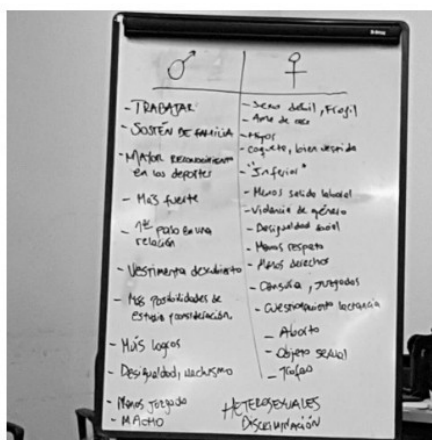 ♂
- TRABAJAR
- SOSTÉN DE FAMILIA
- MAYOR RECONOCIMIENTO
en los deportes
- Más fuerte
- 1er paso en una
relación
- Vestimenta descubierto
- Más posibilidades de
estudio y consideración.
- Más logros
- Desigualdad, machismo
- Menos juzgado
- MACHO
♀
- Sexo débil, Frágil
- Ama de casa
- Hijos
- Coqueta, bien vestida
- "Inferior"
- Menos salida laboral
- Violencia de género
- Desigualdad social
- Menos respeto
- Menos derechos
- Censura, juzgados
- Cuestionamiento lactancia
- Aborto
- Objeto sexual
- Trofeo
HETEROSEXUALES
DISCRIMINACIÓN